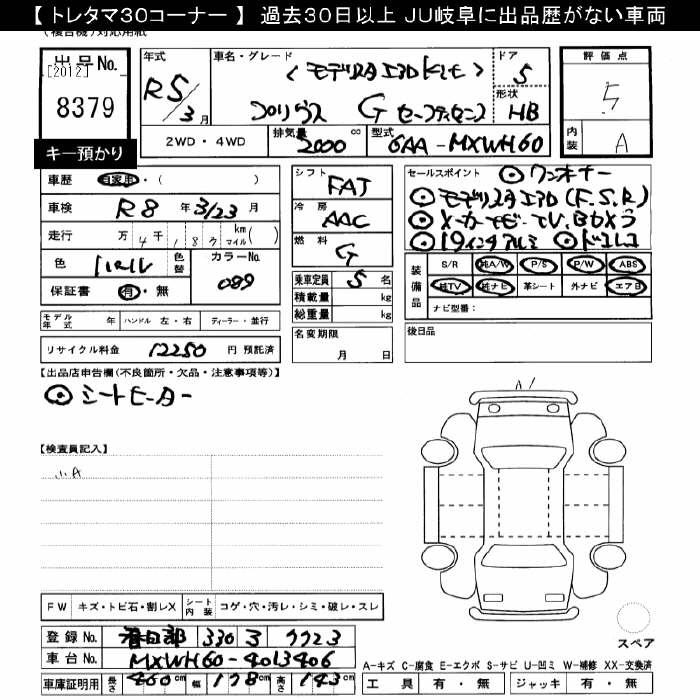 【 トレタマ30コーナー 】 過去30日以上 JU岐阜に出品歴がない車両
出品No.
[2012]
8379
キー預かり
年式
R5/3月
車名・グレード
〈モデリスタエアロKit〉
プリウス G セーフティセンス
ドア
5
形状
HB
評価点
5
内装
A
2WD・4WD
排気量
2000 cc
型式
6AA-MXWH60
車歴 自家用・( )
車検 R8 年 3/23 月
走行 万 4 千 1 8 km マイル( )
色 パール 色替
カラーNo. 089
保証書 有・無
シフト
FAT
冷房
AAC
燃料
G
乗車定員 5 名
積載量 kg
総重量 kg
セールスポイント ◎ワンオーナー
◎モデリスタエアロ(F.S.R)
◎メーカーナビ・TV.Bカメラ
◎19インチアルミ ◎ドラレコ
装備品
S/R 純A/W P/S P/W ABS
純TV 純ナビ 革シート 外ナビ エアB
ナビ型番:
モデル年式 年 ハンドル 左・右 ディーラー・並行
名変期限
月 日
後日品
リサイクル料金 12250 円 預託済
【出品店申告欄(不良箇所・欠品・注意事項等)】
◎シートヒーター
A1
【検査員記入】
小A
FW キズ・トビ石・割レX シート内装 コゲ・穴・汚レ・シミ・破レ・スレ
スペア
登録No. 春日部 330 ス 7723
車台No. MXWH60-4013406
車庫証明用 長さ 460cm 幅 178cm 高さ 143cm
A-キズ C-腐食 E-エクボ S-サビ U-凹ミ W-補修 XX-交換済
工具 有・無 ジャッキ 有・無